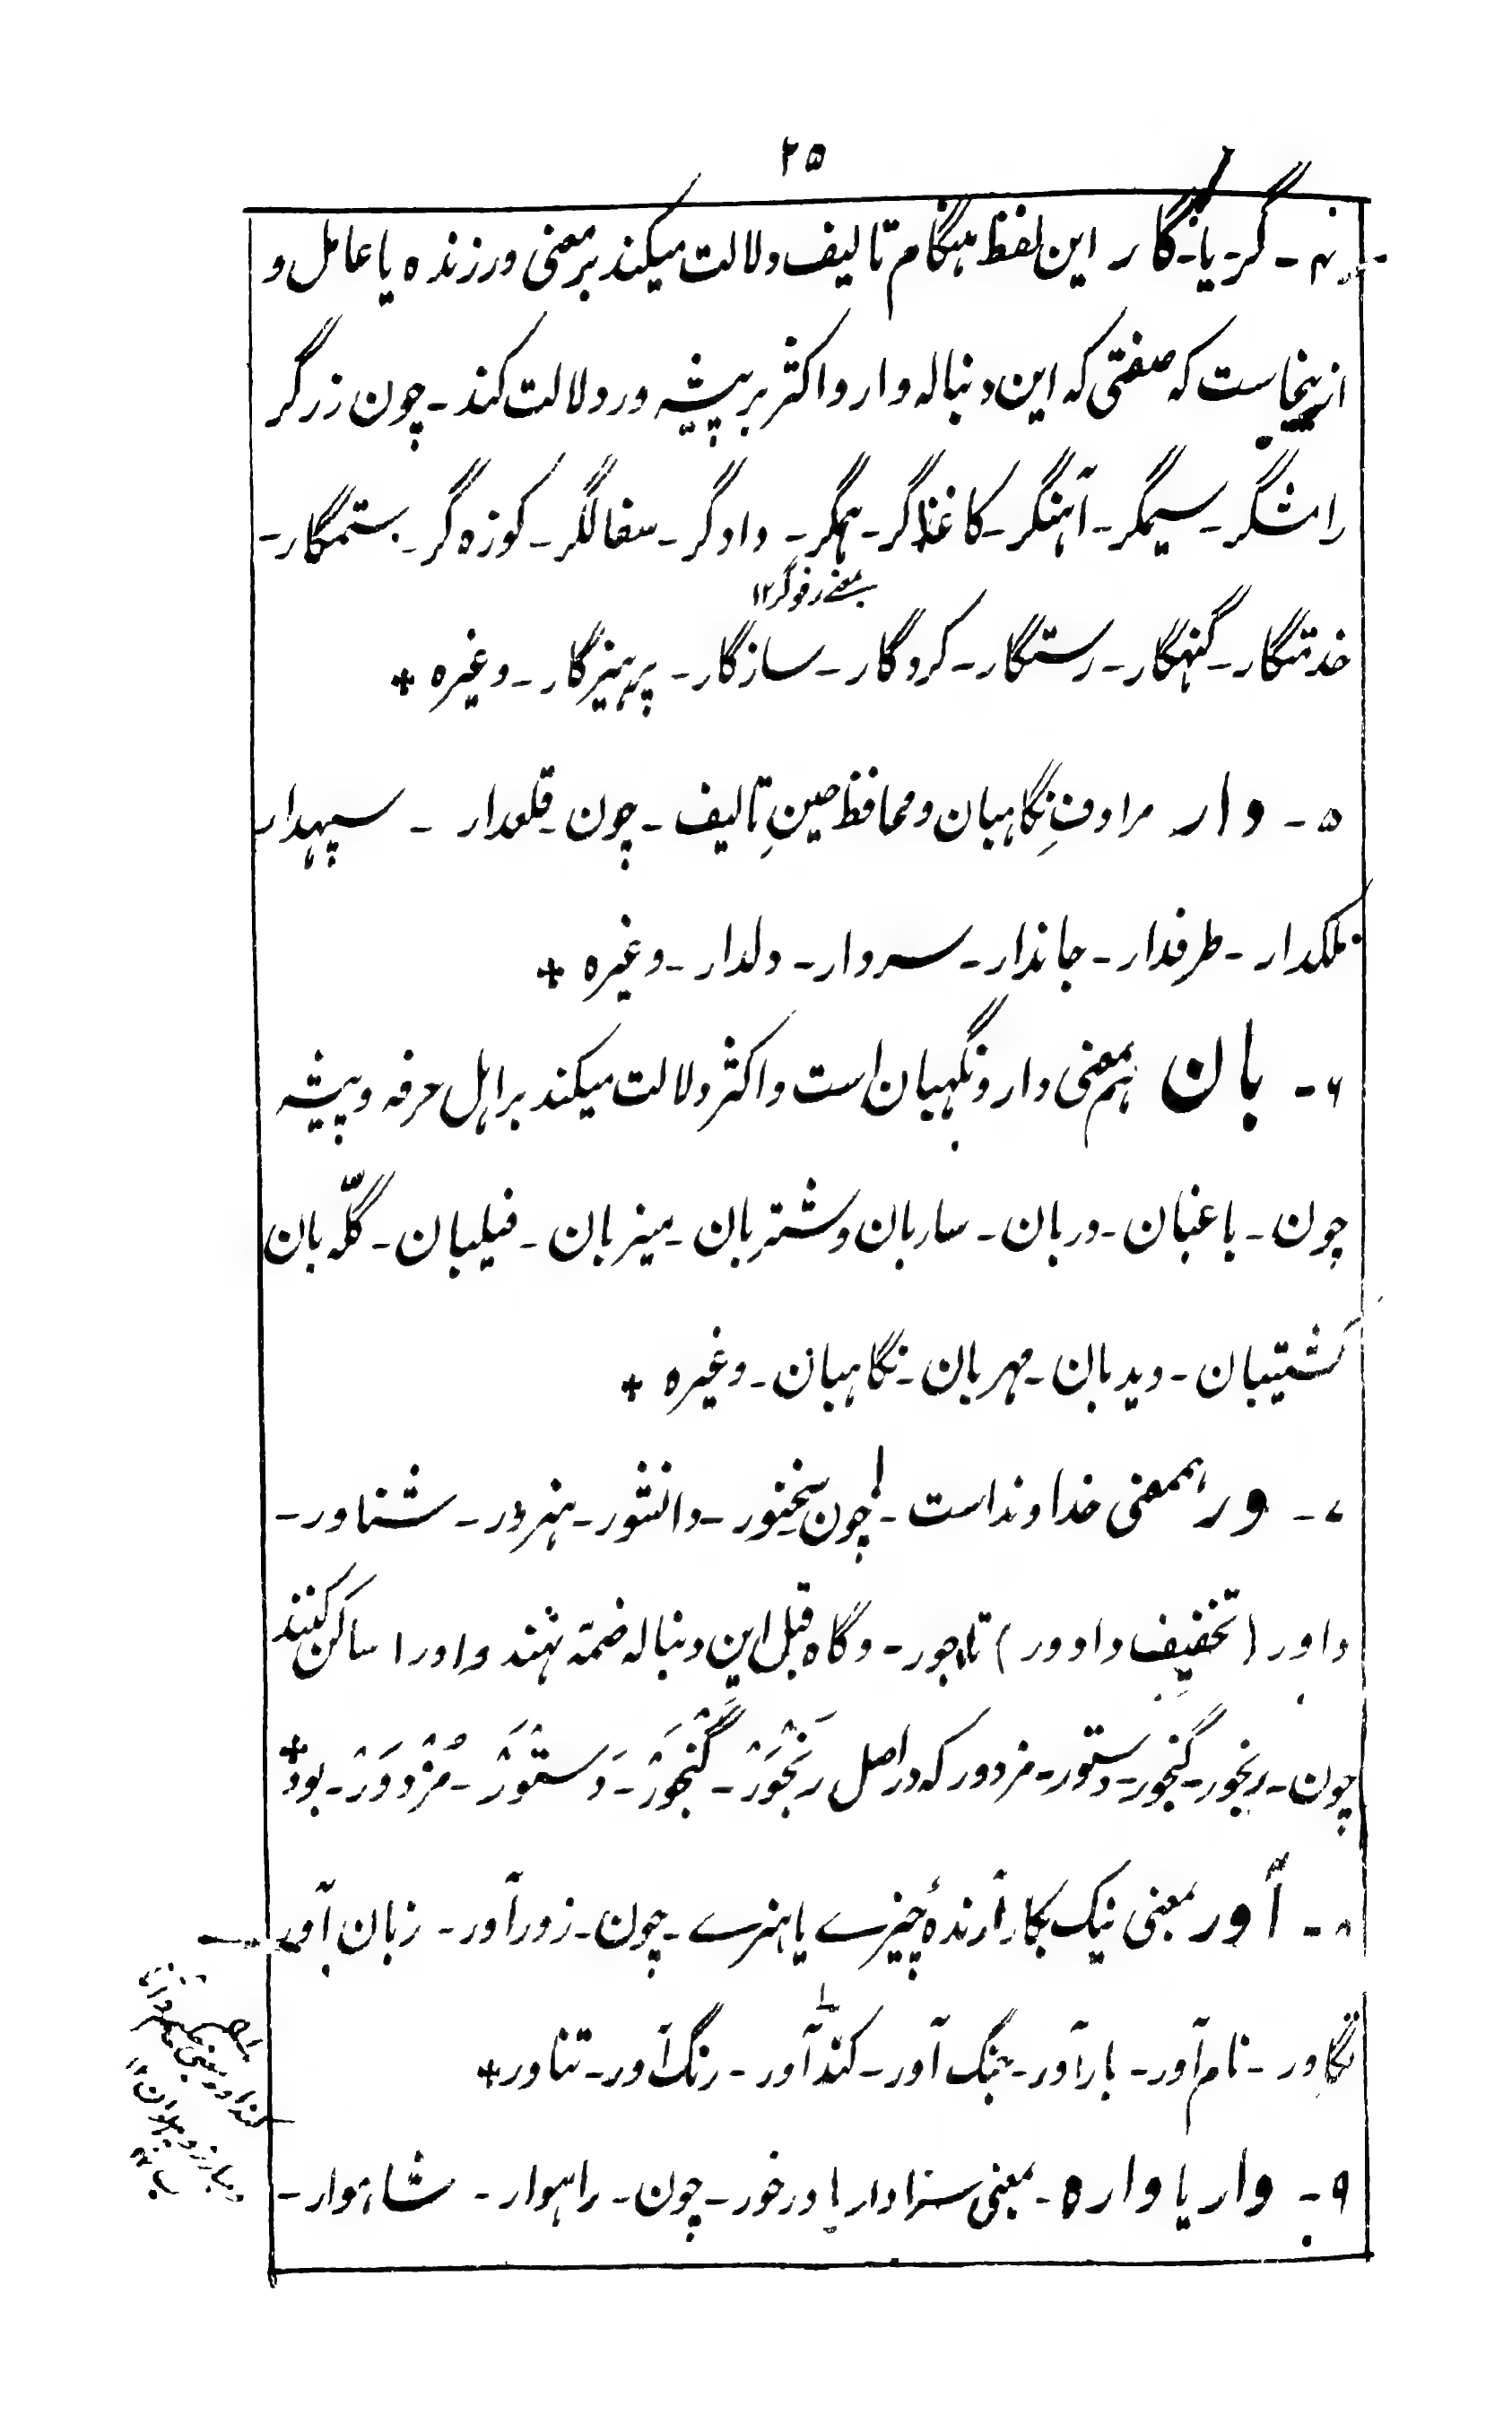 ۲۵
۴ - گر - یا - گار این لفظ هنگام تالیف دلالت میکند بر معنی ورزنده یا عامل و
ازینجاست که صفتی که این دنباله دارد اکثر بر پیشه ور دلالت کند - چون زرگر
رامشگر - سیمگر - آهنگر - کاغذگر - همگر - دادگر - سفالگر - کوزه گر - ستمگار -
بمعنے رفوگر ۱۲
خدمتگار - گنهگار - رستگار - کردگار - سازگار - پرهیزگار - وغیره +
۵ - دار مرادفِ نگاهبان و محافظ حینِ تالیف - چون - قلعدار - سپهدار
ملکدار - طرفدار - جاندار - سردار - دلدار - وغیره +
۶ - بان هم بمعنی دار و نگهبان است و اکثر دلالت میکند بر اهل حرفه و پیشه
چون - باغبان - دربان - ساربان و شتربان - میزبان - فیلبان - گلّه بان
کشتیبان - دیدبان - مهربان - نگاهبان - وغیره +
۷ - ور بمعنی خداوند است - چون سخنور - دانشور - هنرور - شناور -
داور (تخفیفِ دادور) تاجور - و گاه قبل این دنباله ضمّه نهند و او را ساکن کنند
چون - رنجور - گنجور - دستور - مزدور که در اصل رَنْجْوَرْ - گَنْجْوَرْ - دَسْتْوَرْ - مُزْدْوَرْ - بود +
۸ - آور بمعنی نیک بکار آرندهٔ چیزے یا هنرے - چون - زورآور - زبان آور
تگاور - نام آور - بارآور - جنگ آور - کندآور - رنگ آور - تناور +
۹ - وار یا واره - بمعنی سزاوار یا درخور - چون - راهوار - شاهوار -